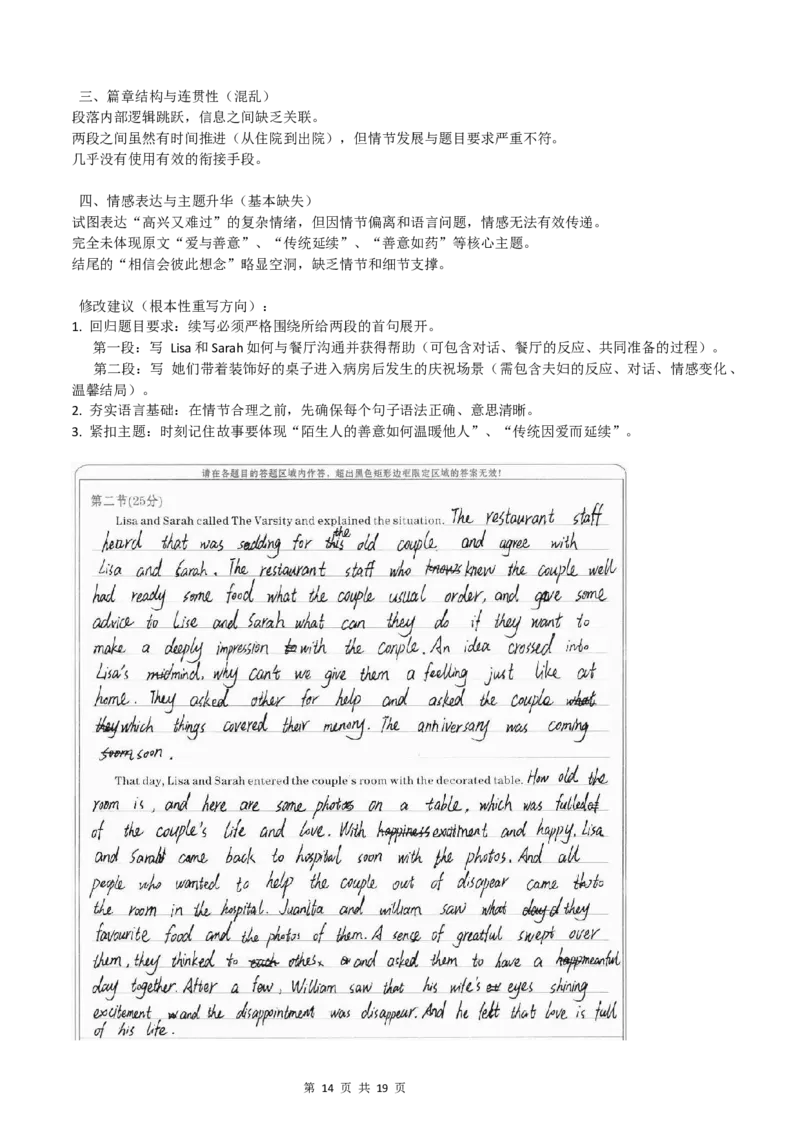 三、篇章结构与连贯性（混乱）
段落内部逻辑跳跃，信息之间缺乏关联。
两段之间虽然有时间推进（从住院到出院），但情节发展与题目要求严重不符。
几乎没有使用有效的衔接手段。
四、情感表达与主题升华（基本缺失）
试图表达“高兴又难过”的复杂情绪，但因情节偏离和语言问题，情感无法有效传递。
完全未体现原文“爱与善意”、“传统延续”、“善意如药”等核心主题。
结尾的“相信会彼此想念”略显空洞，缺乏情节和细节支撑。
修改建议（根本性重写方向）：
1. 回归题目要求：续写必须严格围绕所给两段的首句展开。
第一段：写 Lisa 和 Sarah 如何与餐厅沟通并获得帮助（可包含对话、餐厅的反应、共同准备的过程）。
第二段：写 她们带着装饰好的桌子进入病房后发生的庆祝场景（需包含夫妇的反应、对话、情感变化、
温馨结局）。
2. 夯实语言基础：在情节合理之前，先确保每个句子语法正确、意思清晰。
3. 紧扣主题：时刻记住故事要体现“陌生人的善意如何温暖他人”、“传统因爱而延续”。
请在各题目的答题区域内作答，超出黑色矩形边框限定区域的答案无效！
第二节(25分)
Lisa and Sarah called The Varsity and explained the situation. The restaurant staff
heard that was sadding for the old couple. and agree with
Lisa and Sarah. The restaurant staff who knew the couple well
had ready some food what the couple usual order, and gave some
advice to Lise and Sarah what can they do if they want to
make a deeply impression with the conple. An idea crossed into
Lisa's mind, why can't we give them a feelling just like at
home. They asked other for help and asked the coupla
which things covered their memony. The anniversary was coming
soon.
That day, Lisa and Sarah entered the couple's room with the decorated table. How old the
room is, and here are some photos on a table, which was fulled
of the couple's life and love. With excitment and happy, Lisa
and Sarah came back to hospital soon with the photos. And all
people who wanted to help the couple out of disapear came to
the room in the hospital. Juanita and william saw what they
favourite food and the photos of them. A sence of greatful swept over
them, they thinked to others, and asked them to have a meanful
day together. After a few, William saw that his wife's eyes shining
excitement, and the disappointment was disappear. And he felt that love is full
of his life.
第 14 页 共 19 页